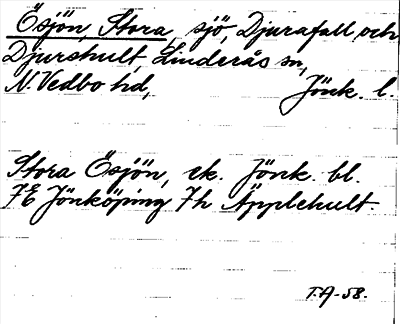 Ösjön, Stora, sjö, Djurafall och
Djurshult, Linderås sn,
N. Vedbo hd, Jönk. l.
Stora Ösjön, ek. Jönk. bl.
7E Jönköping 7h Äpplehult.
T.A-58.